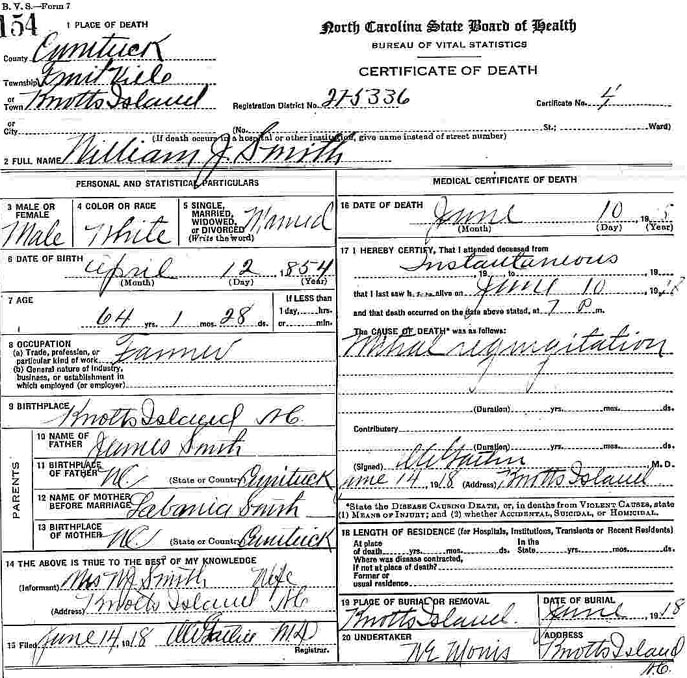 B. V. S.—Form 7
154
1 PLACE OF DEATH
County Currituck
Township Fruit Ville
or
Town Knotts Island
or
City
North Carolina State Board of Health
BUREAU OF VITAL STATISTICS
CERTIFICATE OF DEATH
Registration District No. 275336 Certificate No. 4
(No. St.; Ward)
(If death occurs in a hospital or other institution, give name instead of street number)
2 FULL NAME William J. Smith
PERSONAL AND STATISTICAL PARTICULARS
3 MALE OR FEMALE Male
4 COLOR OR RACE White
5 SINGLE, MARRIED, WIDOWED, OR DIVORCED (Write the word) Married
6 DATE OF BIRTH April 12 1854
(Month) (Day) (Year)
7 AGE 64 yrs. 1 mos. 28 ds.
If LESS than
1 day, hrs.
or min.
8 OCCUPATION Farmer
(a) Trade, profession, or
particular kind of work
(b) General nature of industry,
business, or establishment in
which employed (or employer)
9 BIRTHPLACE Knotts Island N.C.
PARENTS
10 NAME OF FATHER James Smith
11 BIRTHPLACE OF FATHER NC (State or County) Currituck
12 NAME OF MOTHER BEFORE MARRIAGE Smith
13 BIRTHPLACE OF MOTHER NC (State or County) Currituck
14 THE ABOVE IS TRUE TO THE BEST OF MY KNOWLEDGE
(Informant) Mrs WJ Smith Wife
(Address) Knotts Island NC
15 Filed June 14, 1918 MD
Registrar.
MEDICAL CERTIFICATE OF DEATH
16 DATE OF DEATH June 10
(Month) (Day) (Year)
17 I HEREBY CERTIFY, That I attended deceased from
Instantaneous
19 to 19
that I last saw h alive on June 10, 1918
and that death occurred on the date above stated, at 7 P m.
The CAUSE OF DEATH* was as follows:
Mitral regurgitation
(Duration) yrs. mos. ds.
Contributory
(Duration) yrs. mos. ds.
(Signed) M.D.
June 14 1918 (Address) Knotts Island
*State the DISEASE CAUSING DEATH, or, in deaths from VIOLENT CAUSES, state
(1) MEANS OF INJURY; and (2) whether ACCIDENTAL, SUICIDAL, or HOMICIDAL.
18 LENGTH OF RESIDENCE (for Hospitals, Institutions, Transients or Recent Residents)
At place In the
of death yrs. mos. ds. State yrs. mos. ds.
Where was disease contracted,
if not at place of death?
Former or
usual residence
19 PLACE OF BURIAL OR REMOVAL Knotts Island
DATE OF BURIAL June 1918
20 UNDERTAKER
ADDRESS Knotts Island
N.C.